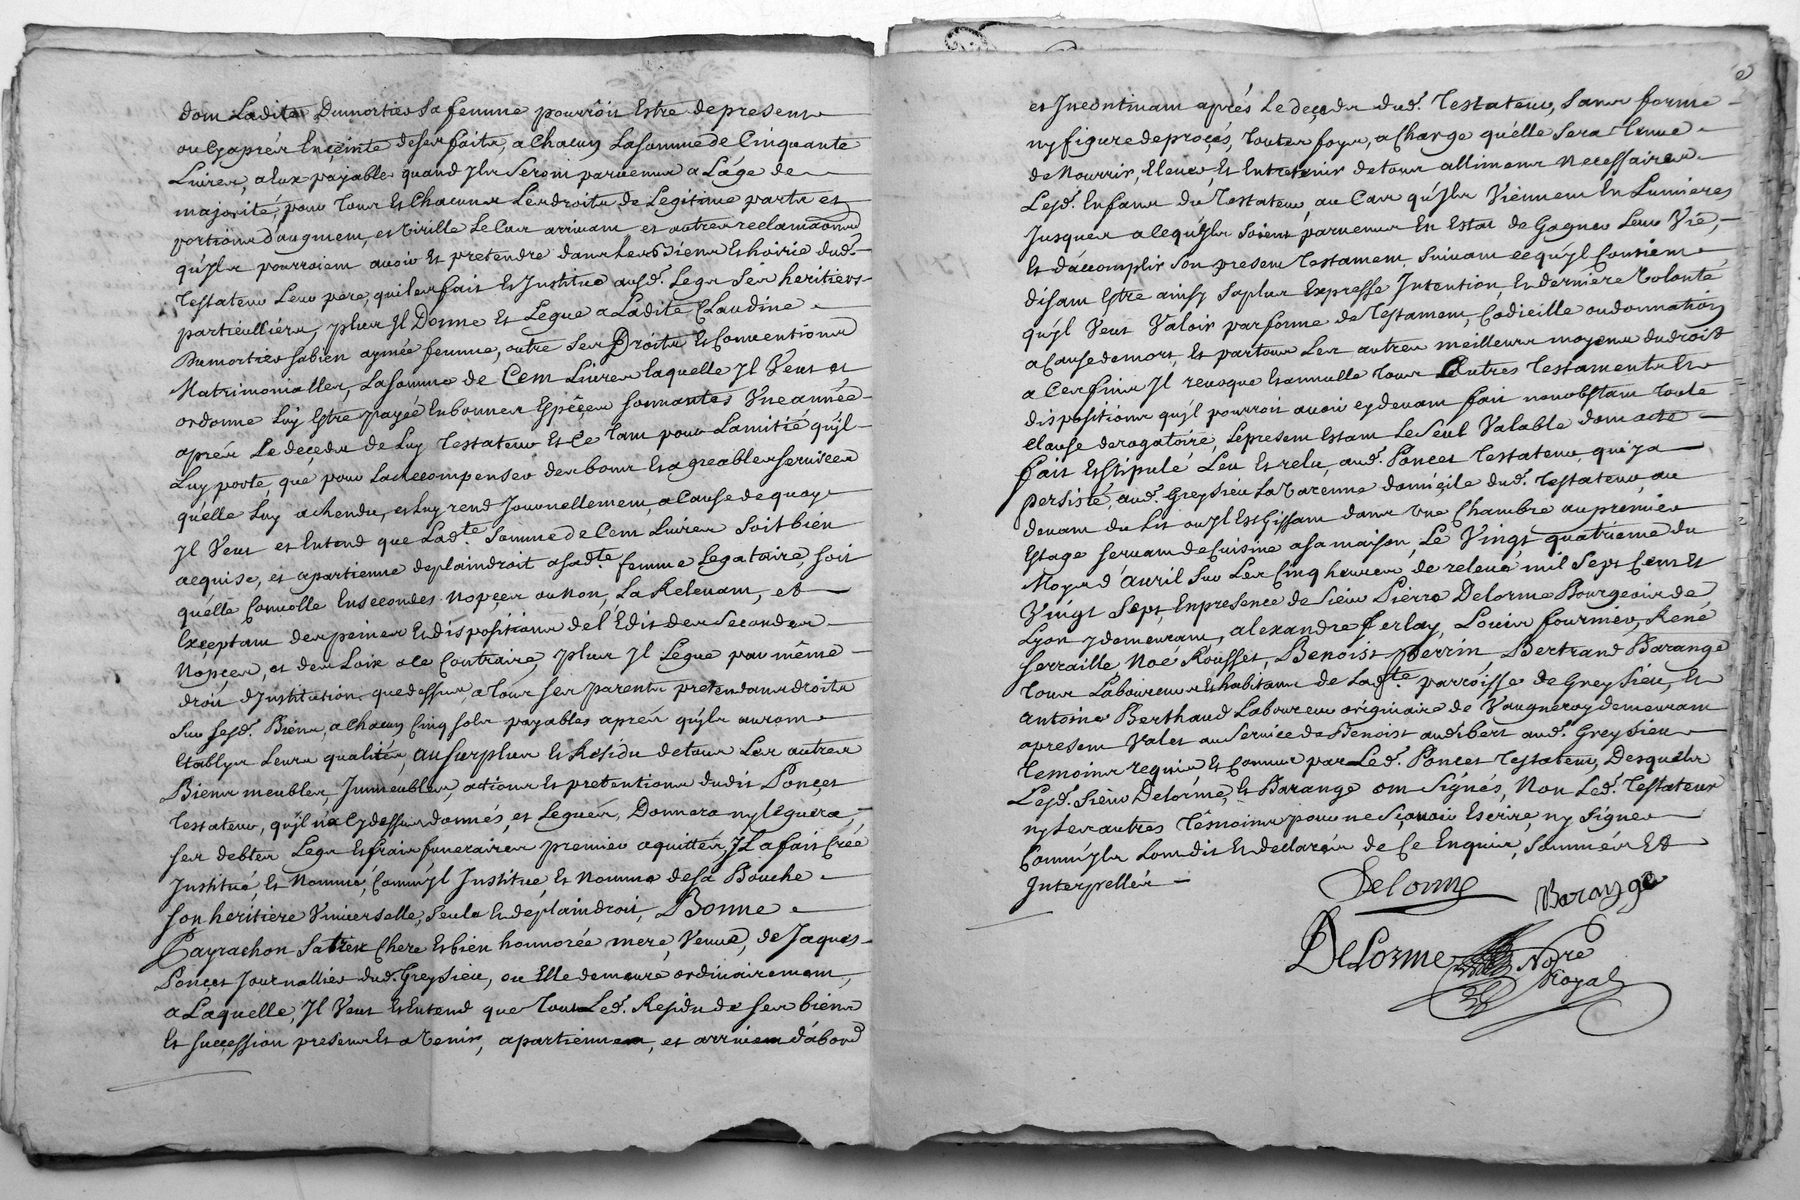 dont Ladite Dumortier sa femme pourroit Estre de present
ou Cy aprés Enceinte de ses faits, a Chacun La somme de Cinquante
Livres, a Eux payable quand Ils seront parvenus a L'áge de
majorité, pour Tous Et Chacuns Les droits de Legitime parts et
portions d'augment, et Virille Le Cas arrivant et autres reclamations
qu'Ils pourroient avoir Et pretendre dans Les Biens Et hoirie dud.
Testateur Leur pere, qui Les fait Et Institue ausd. Legs Ses heritiers
particulliers, plus Il Donne Et Legue a Ladite Claudine
Dumortier sa bien aymée femme, outre Ses Droits Et Conventions
Matrimonialles, La somme de Cent Livres laquelle Il Veut et
ordonne Luy Estre payée En bonnes Espéçes sonnantes Vne année
aprés Le deçeds de Luy Testateur Et Ce Tant pour L'amitié qu'Il
Luy porte, que pour La Recompenser des bons Et agreables services
qu'elle Luy a Rendu, et Luy rend Journellement, a Cause de quoy
Il Veut et Entend que Lad.te Somme de Cent Livres Soit bien
acquise, et apartienne de plain droit a sad.te femme Legataire, soit
qu'elle Convolle En secondes Nopçes ou Non, La Relevant, et
Exçeptant des peines Et dispositions de l'Edit des Secondes
Nopçes, et des Loix a Ce Contraire, plus Il Legue par même
droit d'Institution que dessus a Tous ses parents pretendans droits
Sur sesd. Biens, a Chacun Cinq sols payables aprés qu'Ils auront
Etablys Leurs qualités, au surplus Et Residu de tous Les autres
Biens meubles, Immeubles, actions Et pretentions dudit Ponçet
Testateur, qu'Il n'a Cy dessus donnés, et Legués, Donnera ny leguera,
ses debtes Legs Et frais funeraires premier aquittés, Il a fait Créé
Institué, Et Nommé, Comm'Il Institue Et Nomme de sa Bouche
son heritiere Vniverselle, seule Et de plain droit, Bonne
Payrachon Sa trés Chere Et bien honnorée mere, Veuve, de Jaques
Ponçet Journallier dud. Greysieu, ou Elle demeure ordinairement,
a Laquelle, Il Veut Et Entend que Tout Led. Residu de ses biens
Et sucçession presents Et a Venir, apartiennent, et arrivent d'abord
et Incontinant aprés Le deçeds dud. Testateur, sans forme
ny figure de proçés, toutes foys, a Charge qu'elle sera Tenue
de Nourrir, Elever, Et Entretenir de tous alliments Necessaires
Lesd. Enfans du Testateur, au Cas qu'Ils Viennent En Lumieres
Jusques a Ce qu'Ils soient parvenus En Estat de Gagner Leur Vie,
Et d'accomplir son present Testament, suivant ce qu'Il Contient
disant Estre ainsy sa plus Expresse Intention, Et derniere Volonté
qu'Il Veut Valoir par forme de Testament, Codicille ou donnation
a Cause de mort, Et par tous Les autres meilleurs moyens du droit
a Ces fins Il revoque Et annulle Tous Autres Testaments Et
dispositions qu'Il pourroit avoir Cy devant fait nonobstant toute
Clause derogatoire, Le present Estant Le seul Valable dont acte
fait Et Stipulé Leu Et relu, aud. Ponçet Testateur, qui y a
persisté, aud. Greysieu La Varenne domiçile dud. Testateur, au
devant du Lit ou Il Est Gissant dans Vne Chambre au premier
Estage servant de Cuisine a sa maison, Le Vingt quatrieme du
Moys d'avril Sur Les Cinq heures de relevé mil Sept Cent Et
Vingt Sept, En presence de Sieur Pierre Delorme Bourgeois de
Lyon y demeurant, alexandre ferlay, Louis fournier, René
serraille Noé Rousset, Benoist perrin, Bertrand Barange
Tous Laboureurs Et habitans de Lad.te parroisse de Greysieu, Et
antoine Berthaud Laboureur originaire de Vaugneray demeurant
a present Valet au Service de Benoist audibert aud. Greysieu
Temoins requis Et Connus par Led. Ponçet Testateur, Desquels
Lesd. Sieur Delorme, Et Barange ont Signés, Non Led. Testateur
ny Les autres Témoins pour ne Sçavoir Escrire, ny Signer
Comm'Ils L'ont dit Et declarés de Ce Enquis, Sommés Et
Interpellés
Delorme
Barange
DeLorme Nore
Royal